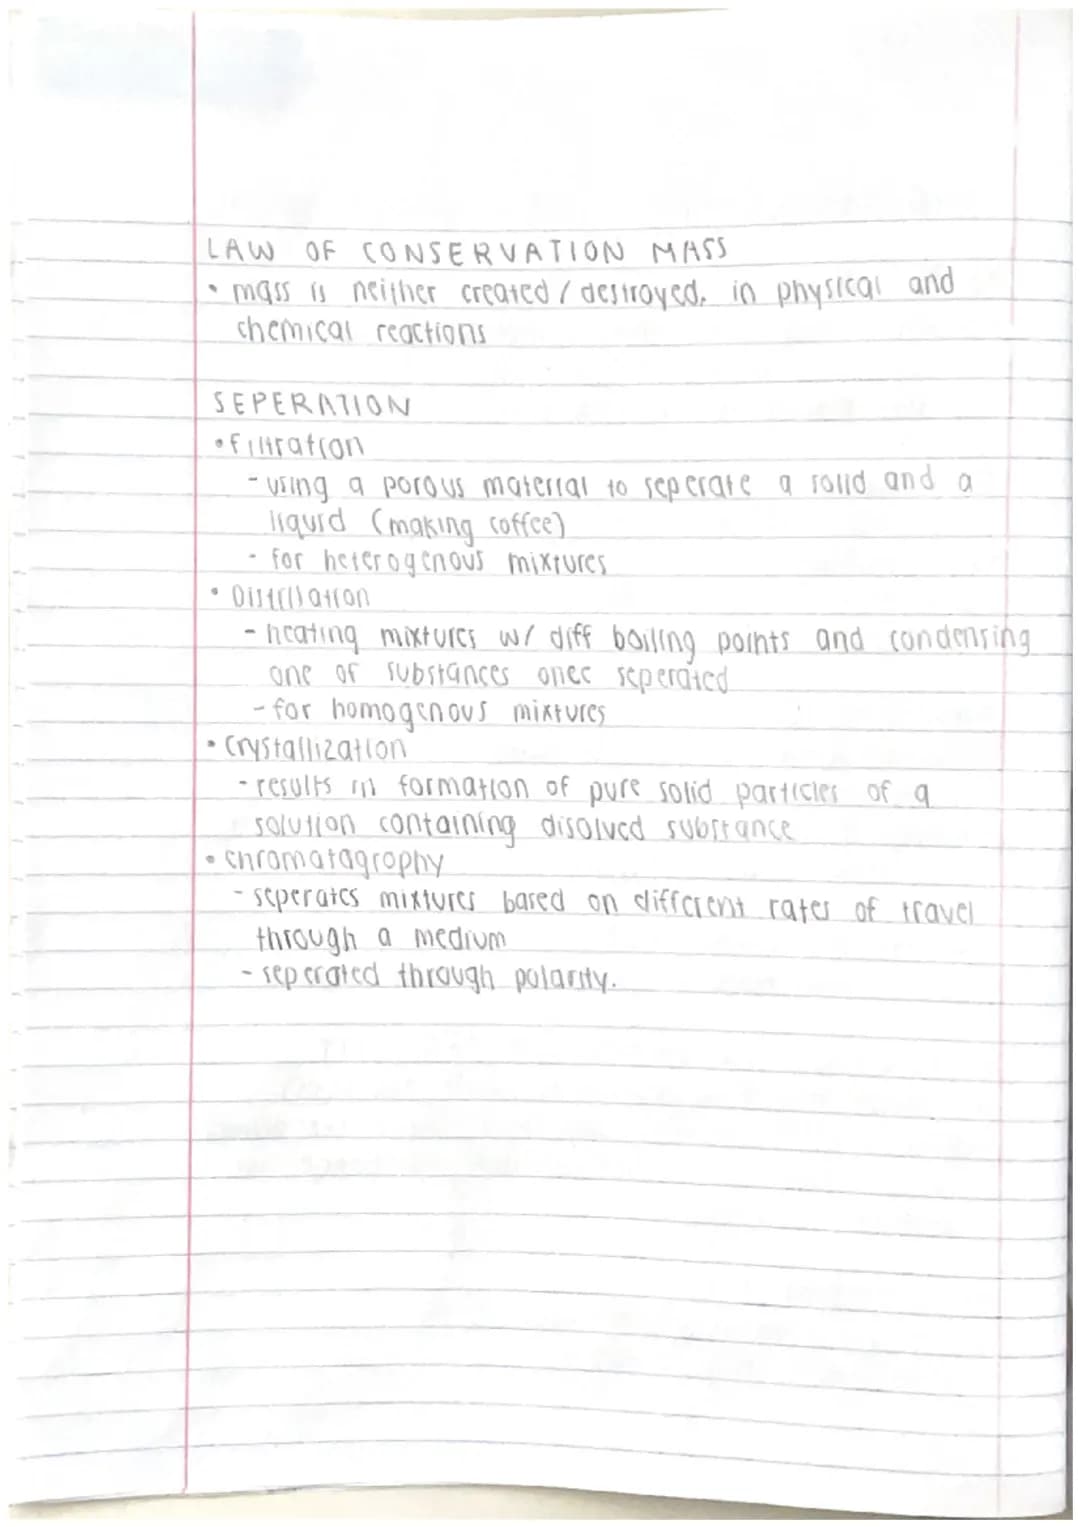 LAW OF CONSERVATION MASS
• mass is neither created / destroyed, in physical and
chemical reactions
SEPERATION
• filtration
- using a porous material to seperate a solid and a
liquid (making coffee)
- for heterogenous mixtures
• Distillation
- heating mixtures w/ diff boiling points and condensing
one of substances once seperated
- for homogenous mixtures
• Crystallization
- results in formation of pure solid particles of a
solution containing disolved substance
• chromatagrophy
- seperates mixtures based on different rates of travel
through a medium
- seperated through polarity.